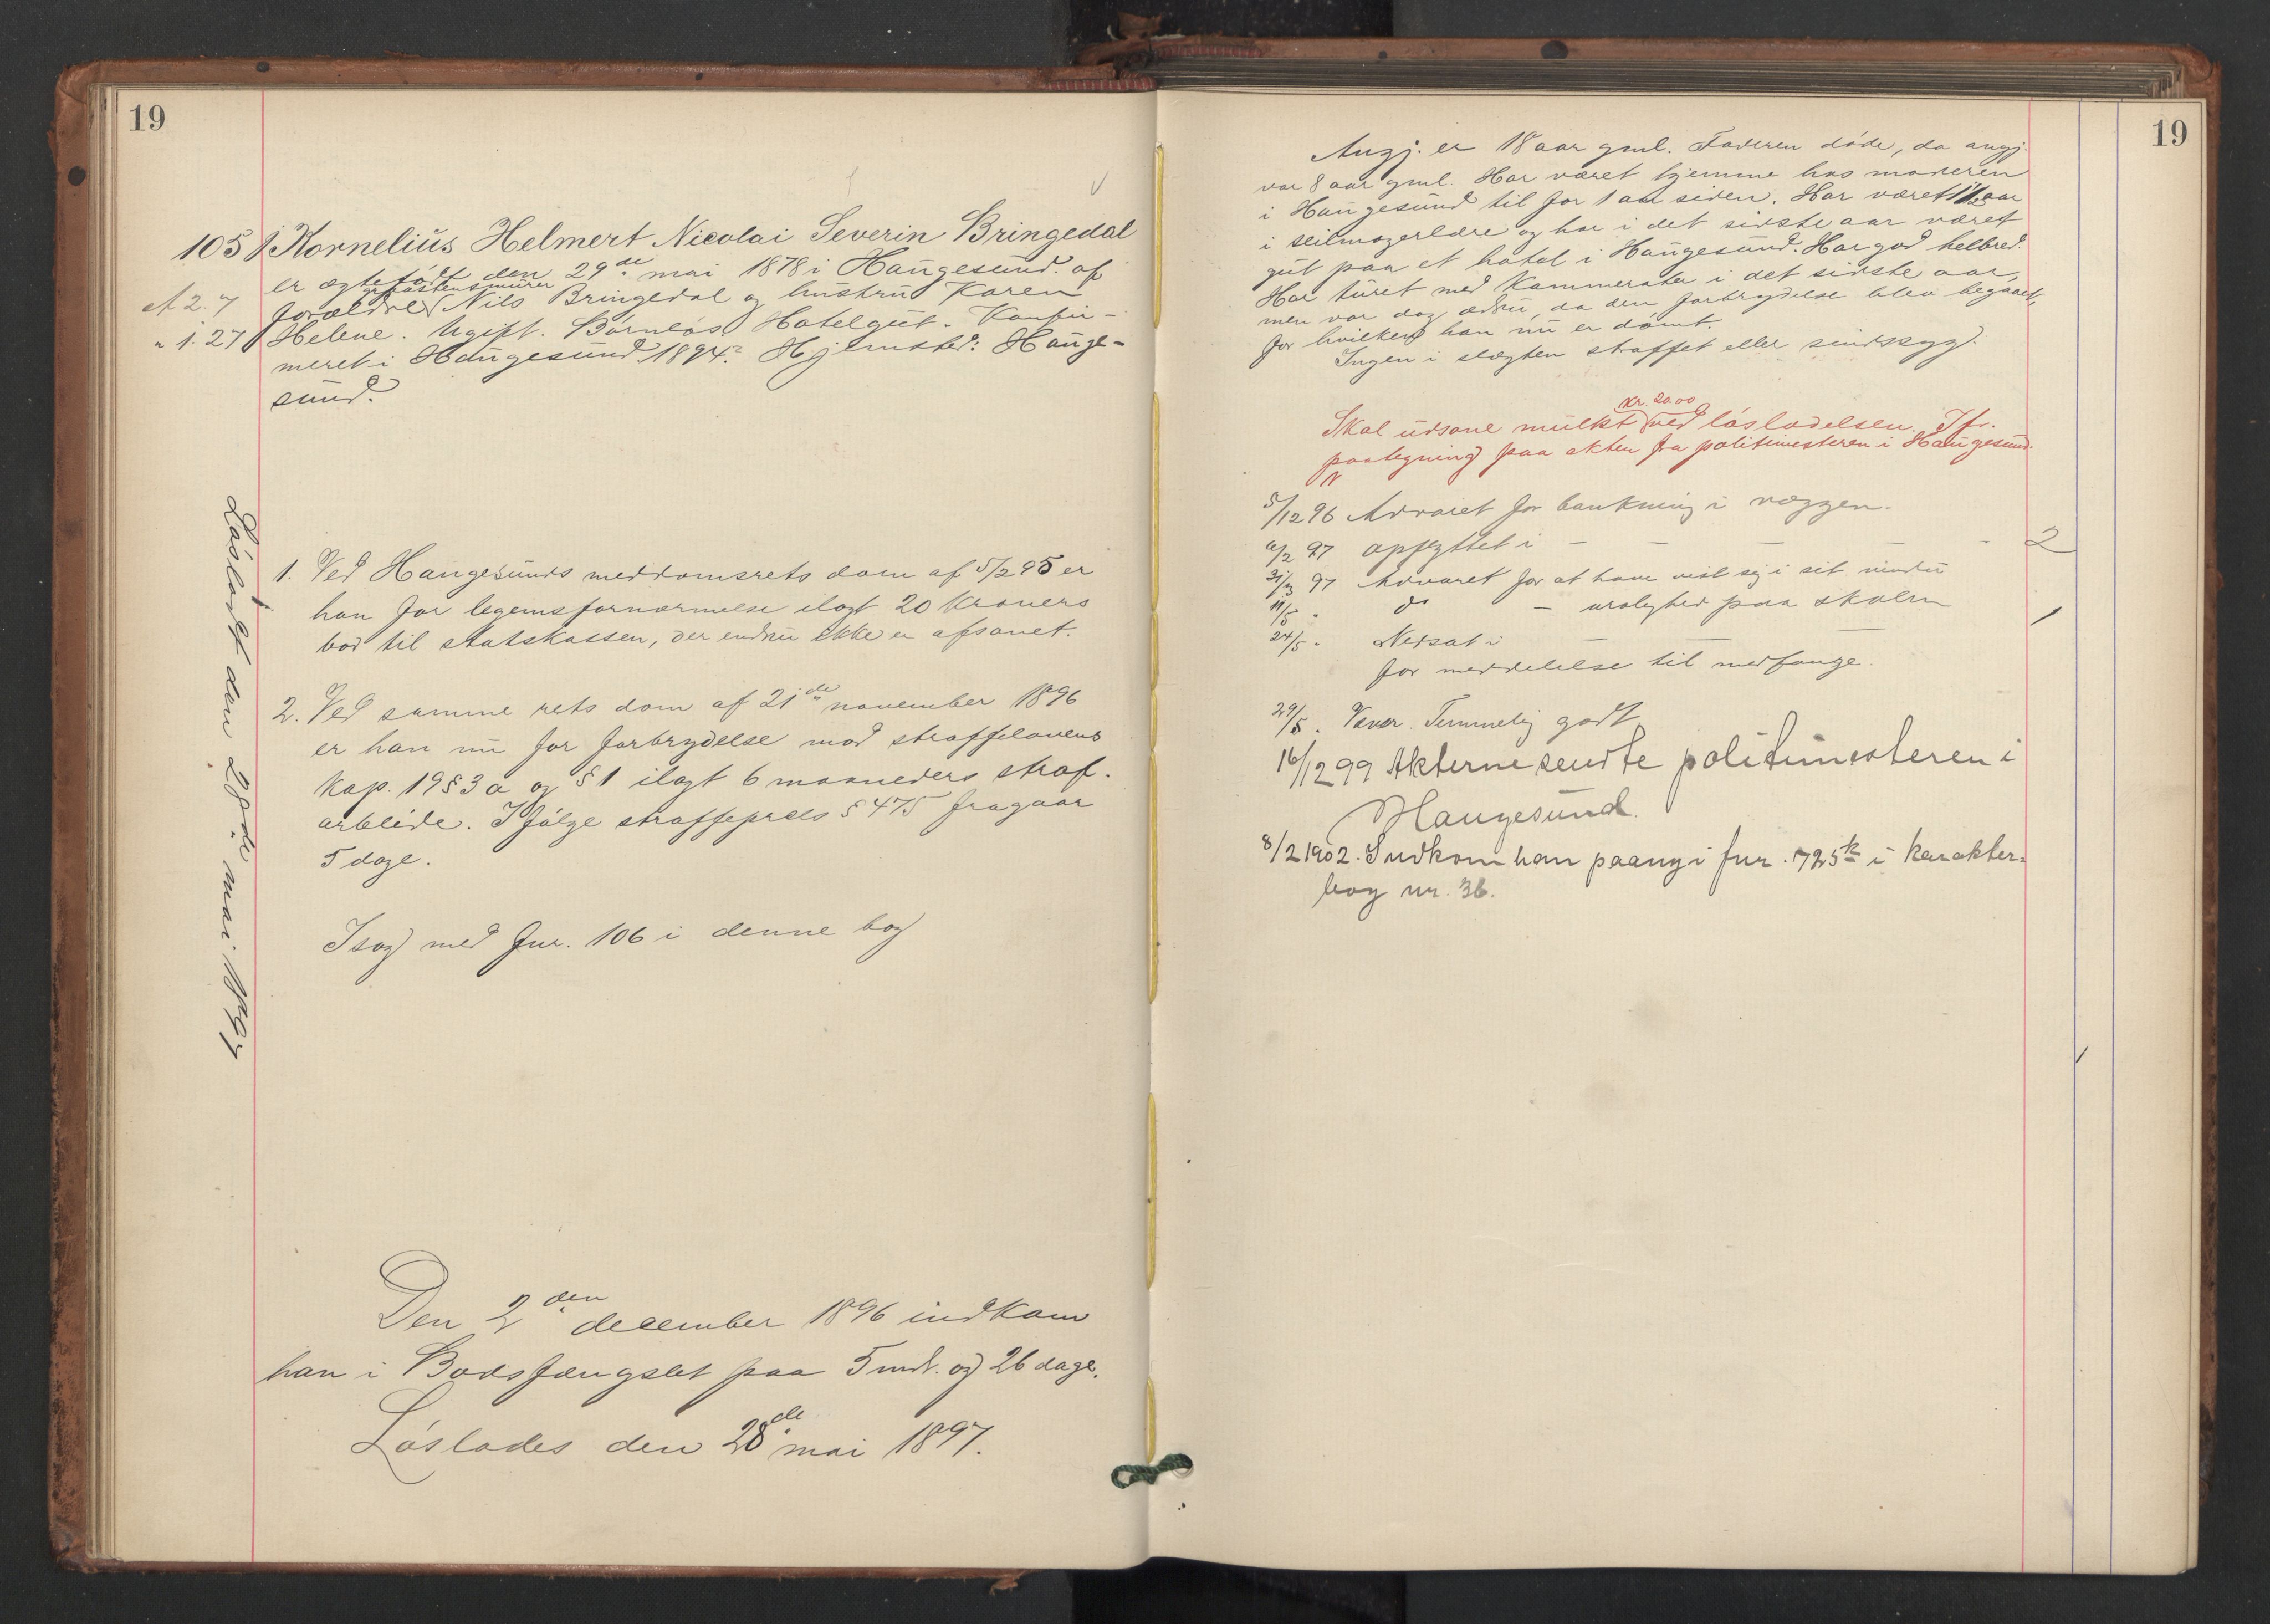 19
105 Kornelius Helmert Nicolai Severin Bringedal
er ægte født den 29de mai 1878 i Haugesund af
forældre graastensmurer Nils Bringedal og hustru Karen
Helene. Ugift. Barnløs. Hotelgut. Konfir-
meret i Haugesund 1894. Hjemsted: Hauge-
sund.
A 2. 7
" 1. 27
Løsladt den 28de mai 1897
1. Ved Haugesunds meddomsrets dom af 5/2 95 er
han for legemsfornærmelse ilagt 20 kroners
bod til statskassen, der endnu ikke er afsonet.
2. Ved samme rets dom af 21de november 1896
er han nu for forbrydelse mod straffelovens
kap. 19 § 3 a og § 1 ilagt 6 maaneders straf-
arbeide. Ifølge straffeprcls § 475 fragaar
5 dage.
I sag med fnr. 106 i denne bog
Den 2den december 1896 indkom
han i Bodsfængslet paa 5 mdr. og 26 dage.
Løslades den 28de mai 1897.
19
Angj. er 18 aar gml. Faderen døde, da angj.
var 8 aar gml. Har været hjemme hos moderen
i Haugesund til for 1 aar siden. Har været 1½ aar
i seilmagerlære og har i det sidste aar været
gut paa et hotel i Haugesund. Har god helbred.
Har turet med kammerater i det sidste aar,
men var dog ædru, da den forbrydelse blev begaaet,
for hvilken han nu er dømt.
Ingen i slægten straffet eller sindssyg.
Skal udsone mulkt kr. 20.00 ved løsladelsen. Jfr.
paategning paa akten fra politimesteren i Haugesund.
5/12 96 Advaret for bankning i væggen.
6/2 97 opflyttet i – – – – – 2
31/3 97 Advaret for at have vist sig i sit vindu
11/5 " do – urolighed paa skolen
24/5 " Nedsat i – – – 1
for meddelelse til medfange.
29/5. Væver. Temmelig godt
16/12 99 Akterne sendte politimesteren i
Haugesund.
8/2 1902. Indkom han paany i fnr. 725 k i karakter-
bog nr. 36.
1